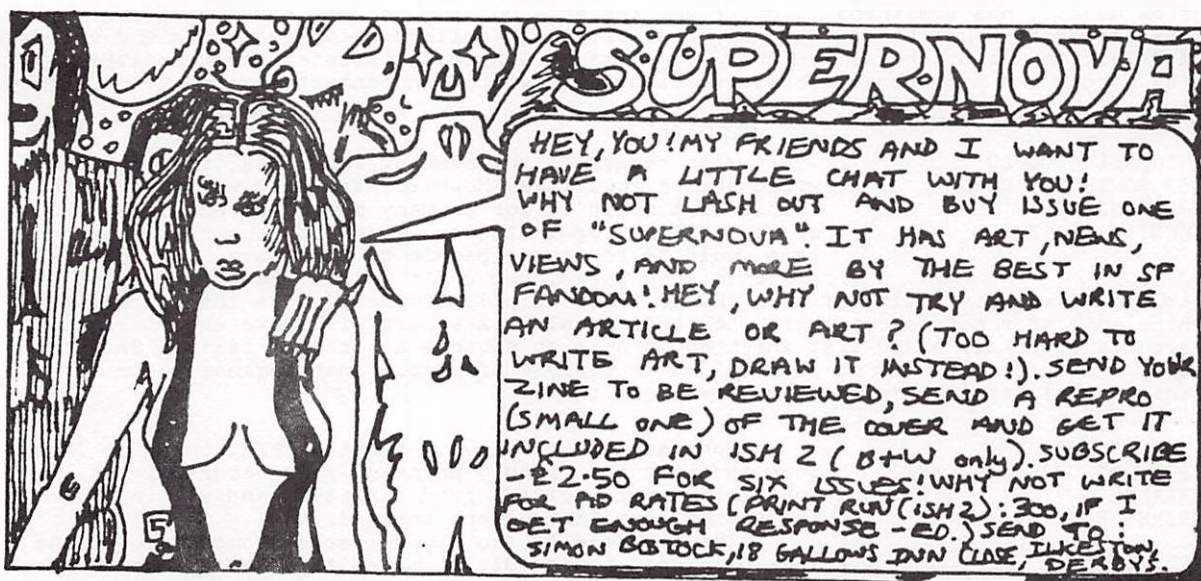 SUPERNOVA
HEY, YOU! MY FRIENDS AND I WANT TO
HAVE A LITTLE CHAT WITH YOU!
WHY NOT LASH OUT AND BUY ISSUE ONE
OF "SUPERNOVA". IT HAS ART, NEWS,
VIEWS, AND MORE BY THE BEST IN SF
FANDOM! HEY, WHY NOT TRY AND WRITE
AN ARTICLE OR ART? (TOO HARD TO
WRITE ART, DRAW IT INSTEAD!). SEND YOUR
ZINE TO BE REVIEWED, SEND A REPRO
(SMALL ONE) OF THE COVER AND GET IT
INCLUDED IN ISH 2 (B+W only). SUBSCRIBE
-£2.50 FOR SIX ISSUES! WHY NOT WRITE
FOR AD RATES (PRINT RUN (ISH 2): 300, IF I
GET ENOUGH RESPONSE -ED.) SEND TO:
SIMON BOSTOCK, 18 GALLOWS INN CLOSE, ILKESTON,
DERBYS.